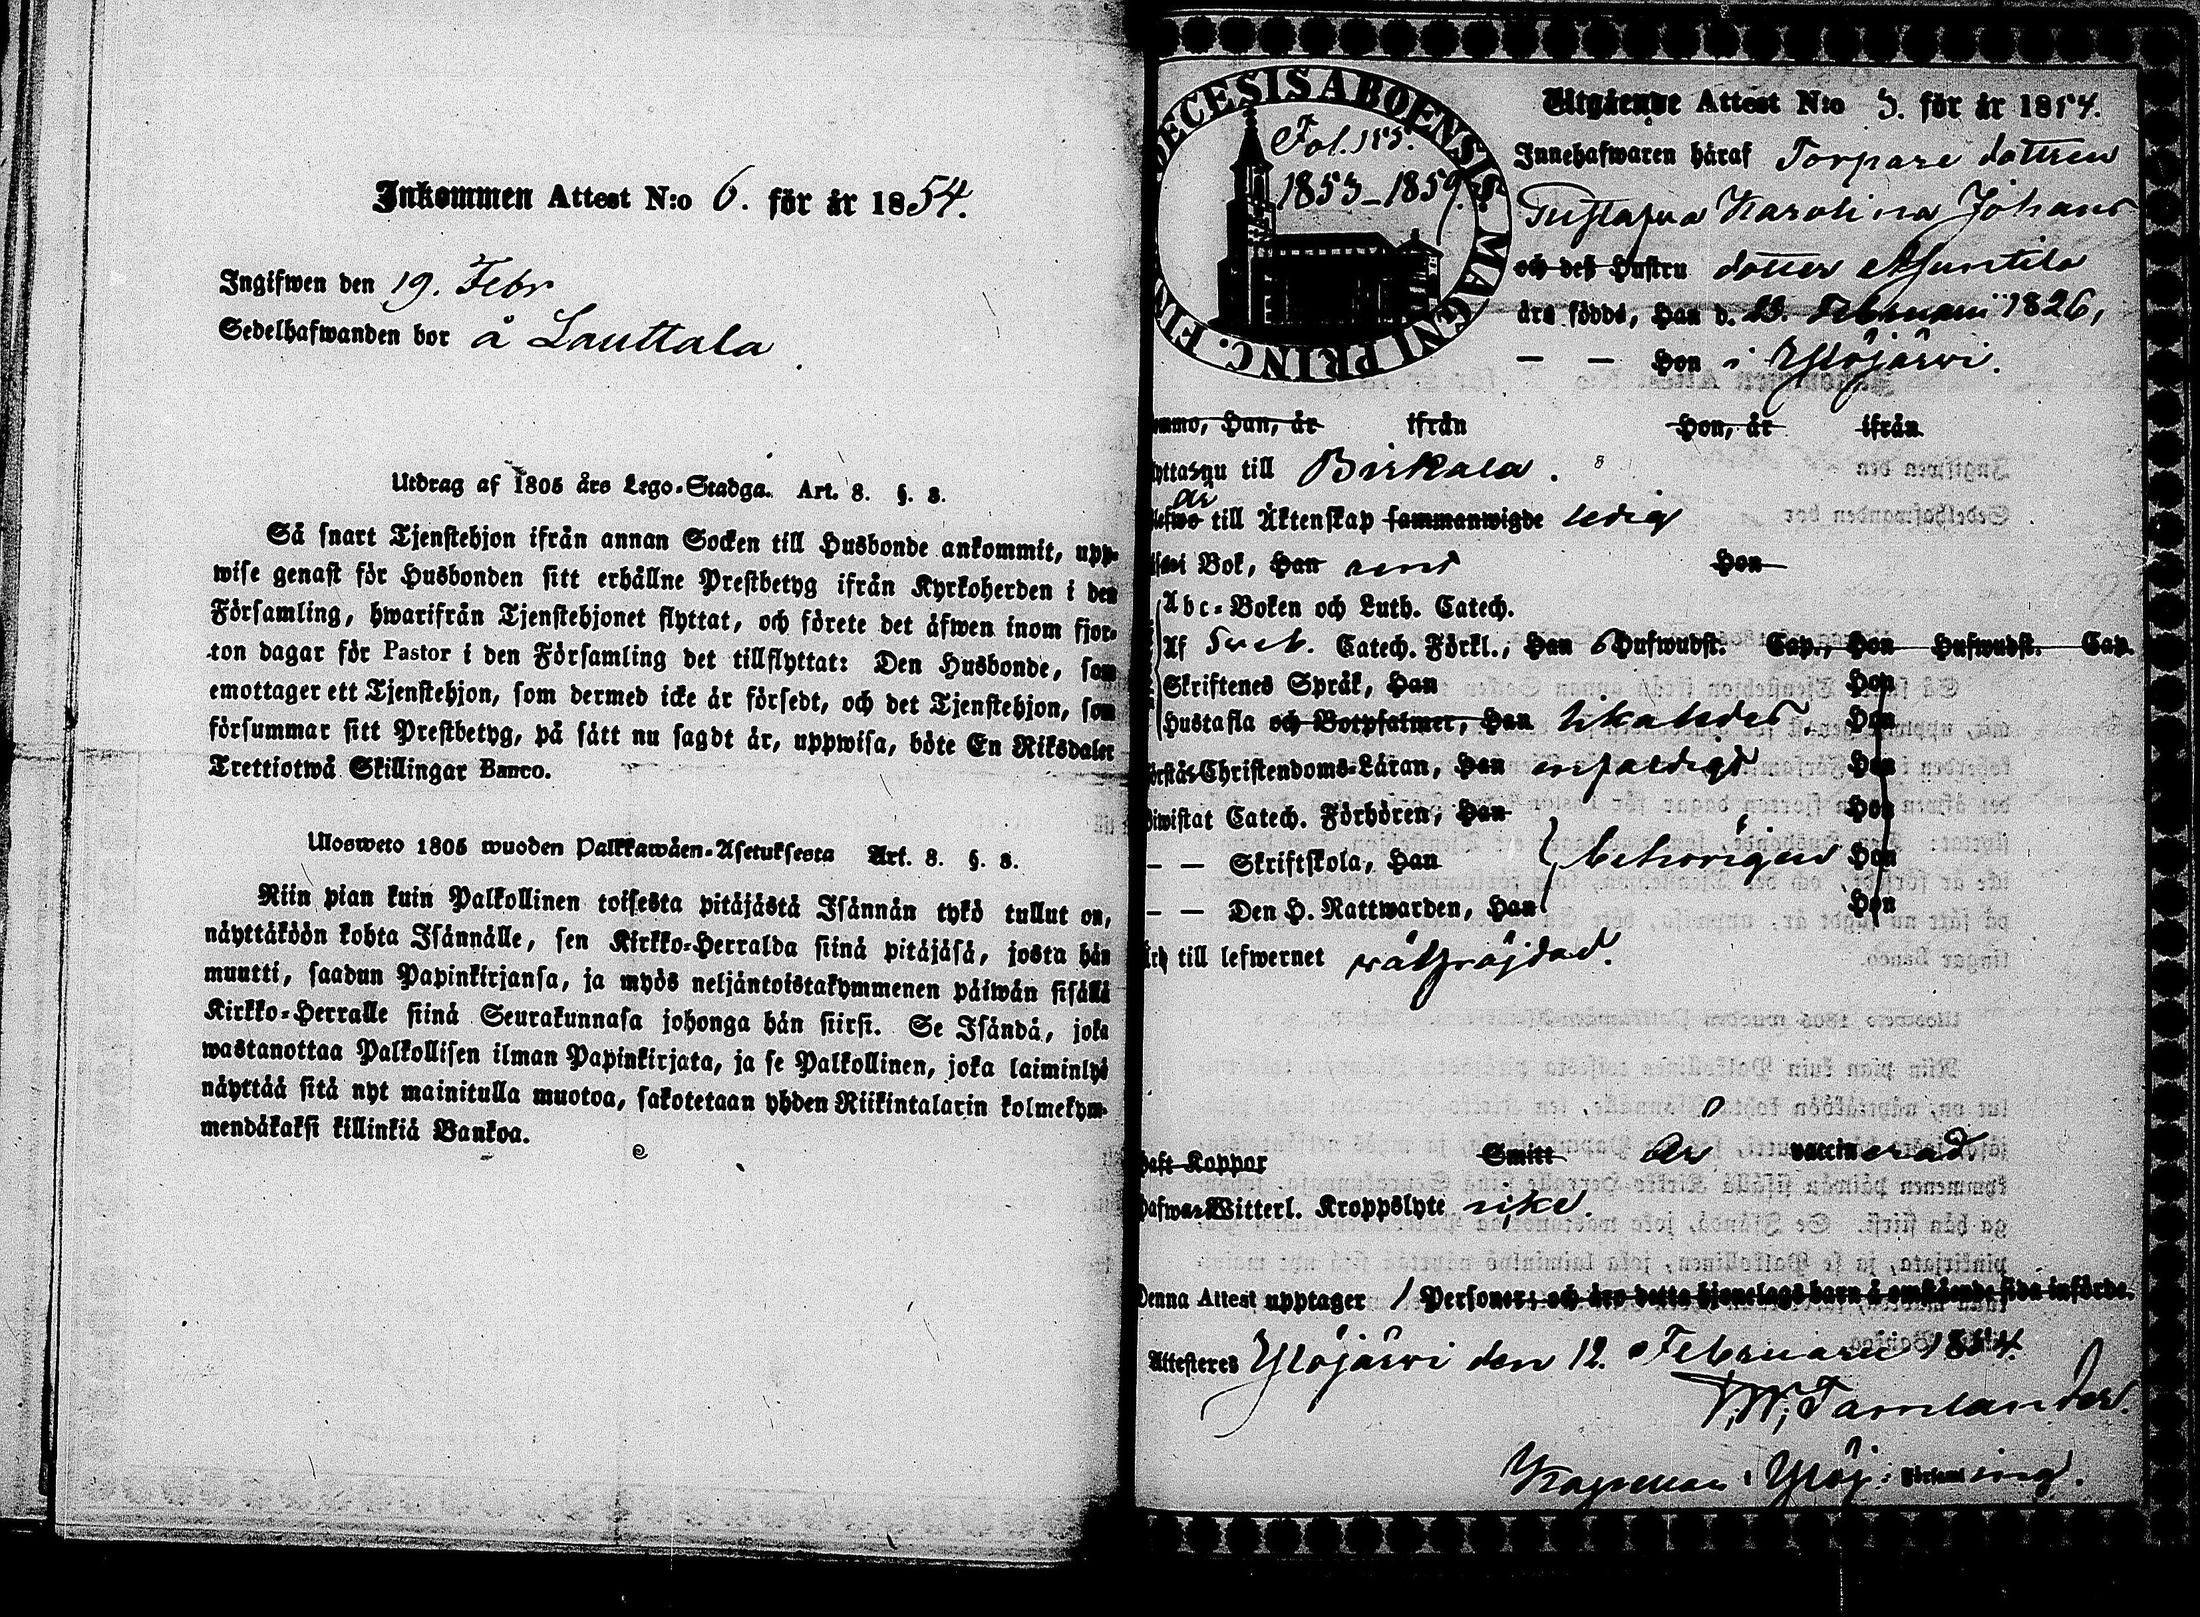 Inkommen Attest N:o 6. för år 1854.
Ingifwen den 19. Febr
Sedelhafwanden bor å Lauttala
Utdrag af 1805 års Lego-Stadga. Art. 8. §. 8.
Så snart Tjenstehjon ifrån annan Socken till Husbonde ankommit, upp-
wise genast för Husbonden sitt erhållne Prestbetyg ifrån Kyrkoherden i den
Församling, hwarifrån Tjenstehjonet flyttat, och förete det äfwen inom fjor-
ton dagar för Pastor i den Församling det tillflyttat: Den Husbonde, som
emottager ett Tjenstehjon, som dermed icke är försedt, och det Tjenstehjon, som
försummar sitt Prestbetyg, på sätt nu sagdt är, uppwisa, böte En Riksdaler
Trettiotwå Skillingar Banco.
Ulosweto 1805 wuoden Palkkawäen-Asetuksesta Art. 8. §. 8.
Niin pian kuin Palkollinen toisesta pitäjästä Isännän tykö tullut on,
näyttäköön kohta Isännälle, sen Kirkko-Herralda siinä pitäjäsä, josta hän
muutti, saadun Papinkirjansa, ja myös neljäntoistakymmenen päiwän sisällä
Kirkko-Herralle siinä Seurakunnasa johonga hän siirsi. Se Isändä, joka
wastanottaa Palkollisen ilman Papinkirjata, ja se Palkollinen, joka laiminlyö
näyttää sitä nyt mainitulla muotoa, sakotetaan yhden Riikintalarin kolmekym-
mendäkaksi killinkiä Bankoa.
DECESIS ABOENSIS MAGNI PRINC. FIN
Fol. 155.
1853-1859.
Utgående Attest N:o 3. för år 1854.
Innehafwaren häraf Torpare dottren
Gustafwa Karolina Johans
och deß Hustru dotter Mjuntila
äro födde, Han d. Februarii 1826,
— — Hon i Ylöjärwi.
ommo, Han, år ifrån Hon, år ifrån
yttas nu till Birkala.
är
lefwo till Äktenskap sammanwigde ledig
i Bok, Han rent Hon
Abc-Boken och Luth. Catech.
Af Sveb. Catech. Förkl., Han 6 Hufwudst. Cap., Hon Hufwudst. Cap.
Skriftenes Språk, Han Hon
Hustafla och Botpsalmer, Han likaledes, Hon
örstår Christendoms-Läran, Han enfaldigt Hon
iwistat Catech. Förhören, Han Hon
— — Skriftskola, Han behörigen Hon
— — Den H. Nattwarden, Han Hon
är till lefwernet wälfräjdad.
haft Koppor Smitt är vaccinerad.
hafwa Witterl. Kroppslyte icke.
Denna Attest upptager 1 Personer; och äro detta hjonelags barn å omstående sida införde.
Attesteres Ylöjärwi den 12. Februarii 1854.
Tamlander.
Kapellan i Ylöj: Församling.